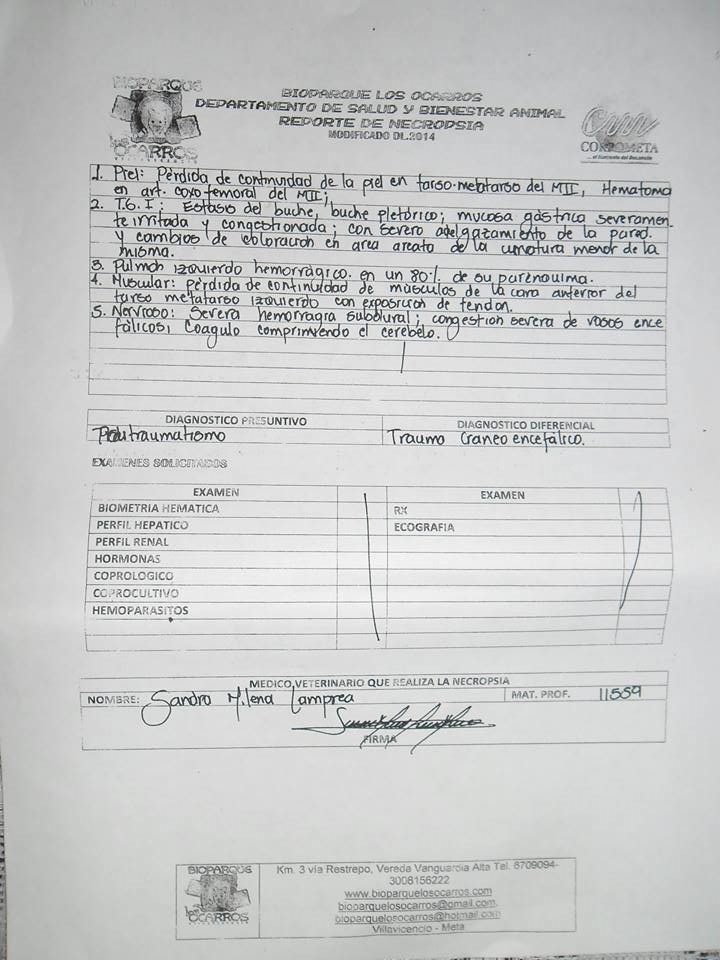 BIOPARQUE
los
OCARROS
VILLAVICENCIO
BIOPARQUE LOS OCARROS
DEPARTAMENTO DE SALUD Y BIENESTAR ANIMAL
REPORTE DE NECROPSIA
MODIFICADO DL.2014
CORPOMETA
1. Piel: Pérdida de continuidad de la piel en tarso-metatarso del MII, Hematoma
en art. coxo femoral del MII;
2. T.G.I: Estasis del buche, buche pletórico; mucosa gástrica severamen-
te irritada y congestionada; con severo adelgazamiento de la pared.
y cambios de coloracion en area de la curvatura menor de la
misma.
3. Pulmon izquierdo hemorrágico. en un 80% de su parénquima.
4. Muscular: pérdida de continuidad de músculos de la cara anterior del
tarso metatarso izquierdo con exposicion de tendon.
5. Nervioso: Severa hemorragia subdural; congestion severa de vasos ence
fálicos; Coagulo comprimiendo el cerebelo.
DIAGNOSTICO PRESUNTIVO
DIAGNOSTICO DIFERENCIAL
Politraumatismo
Trauma Craneo encefálico.
EXAMENES SOLICITADOS
EXAMEN
EXAMEN
BIOMETRIA HEMATICA
RX
PERFIL HEPATICO
ECOGRAFIA
PERFIL RENAL
HORMONAS
COPROLOGICO
COPROCULTIVO
HEMOPARASITOS
MEDICO VETERINARIO QUE REALIZA LA NECROPSIA
NOMBRE: Sandra Milena Lamprea
MAT. PROF. 11559
FIRMA
BIOPARQUE
los
OCARROS
Km. 3 vía Restrepo, Vereda Vanguardia Alta Tel. 6709094-
3008156222
www.bioparquelosocarros.com
bioparquelosocarros@gmail.com,
bioparquelosocarros@hotmail.com
Villavicencio - Meta